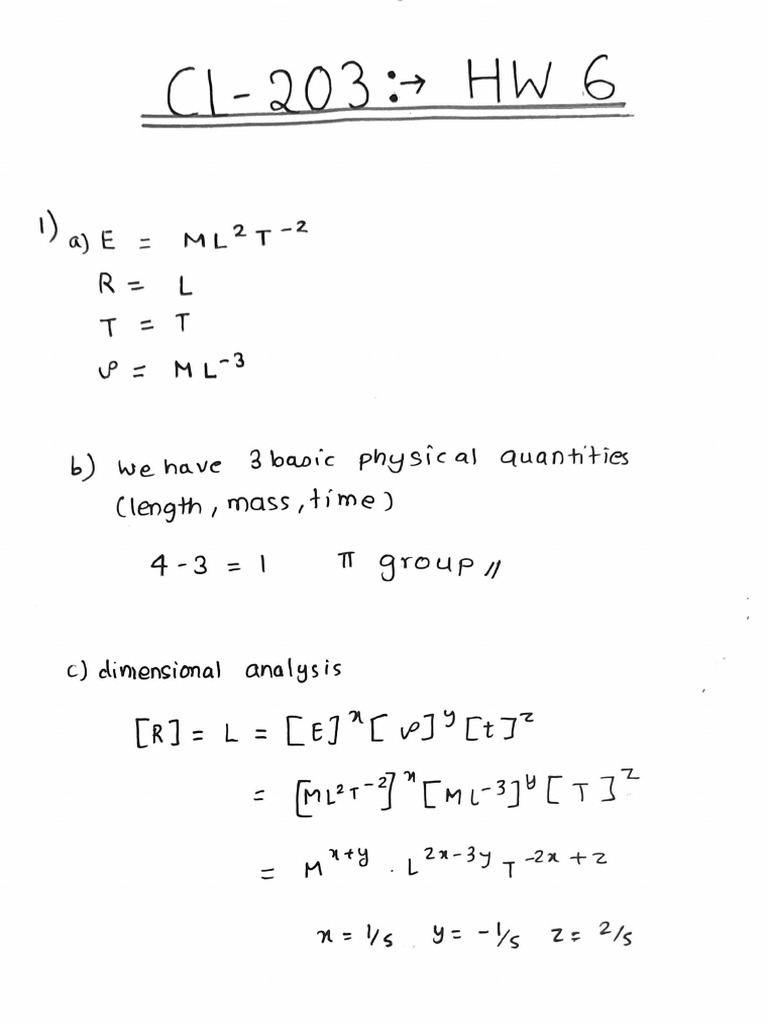 CL-203:→ HW 6
1) a) E = ML²T⁻²
R = L
T = T
ρ = ML⁻³
b) we have 3 basic physical quantities
(length, mass, time)
4-3 = 1 π group //
c) dimensional analysis
[R] = L = [E]ˣ[ρ]ʸ[t]ᶻ
= [ML²T⁻²]ˣ[ML⁻³]ʸ[T]ᶻ
= M^x+y . L^2x-3y T^-2x+z
x = 1/5 y = -1/5 z = 2/5